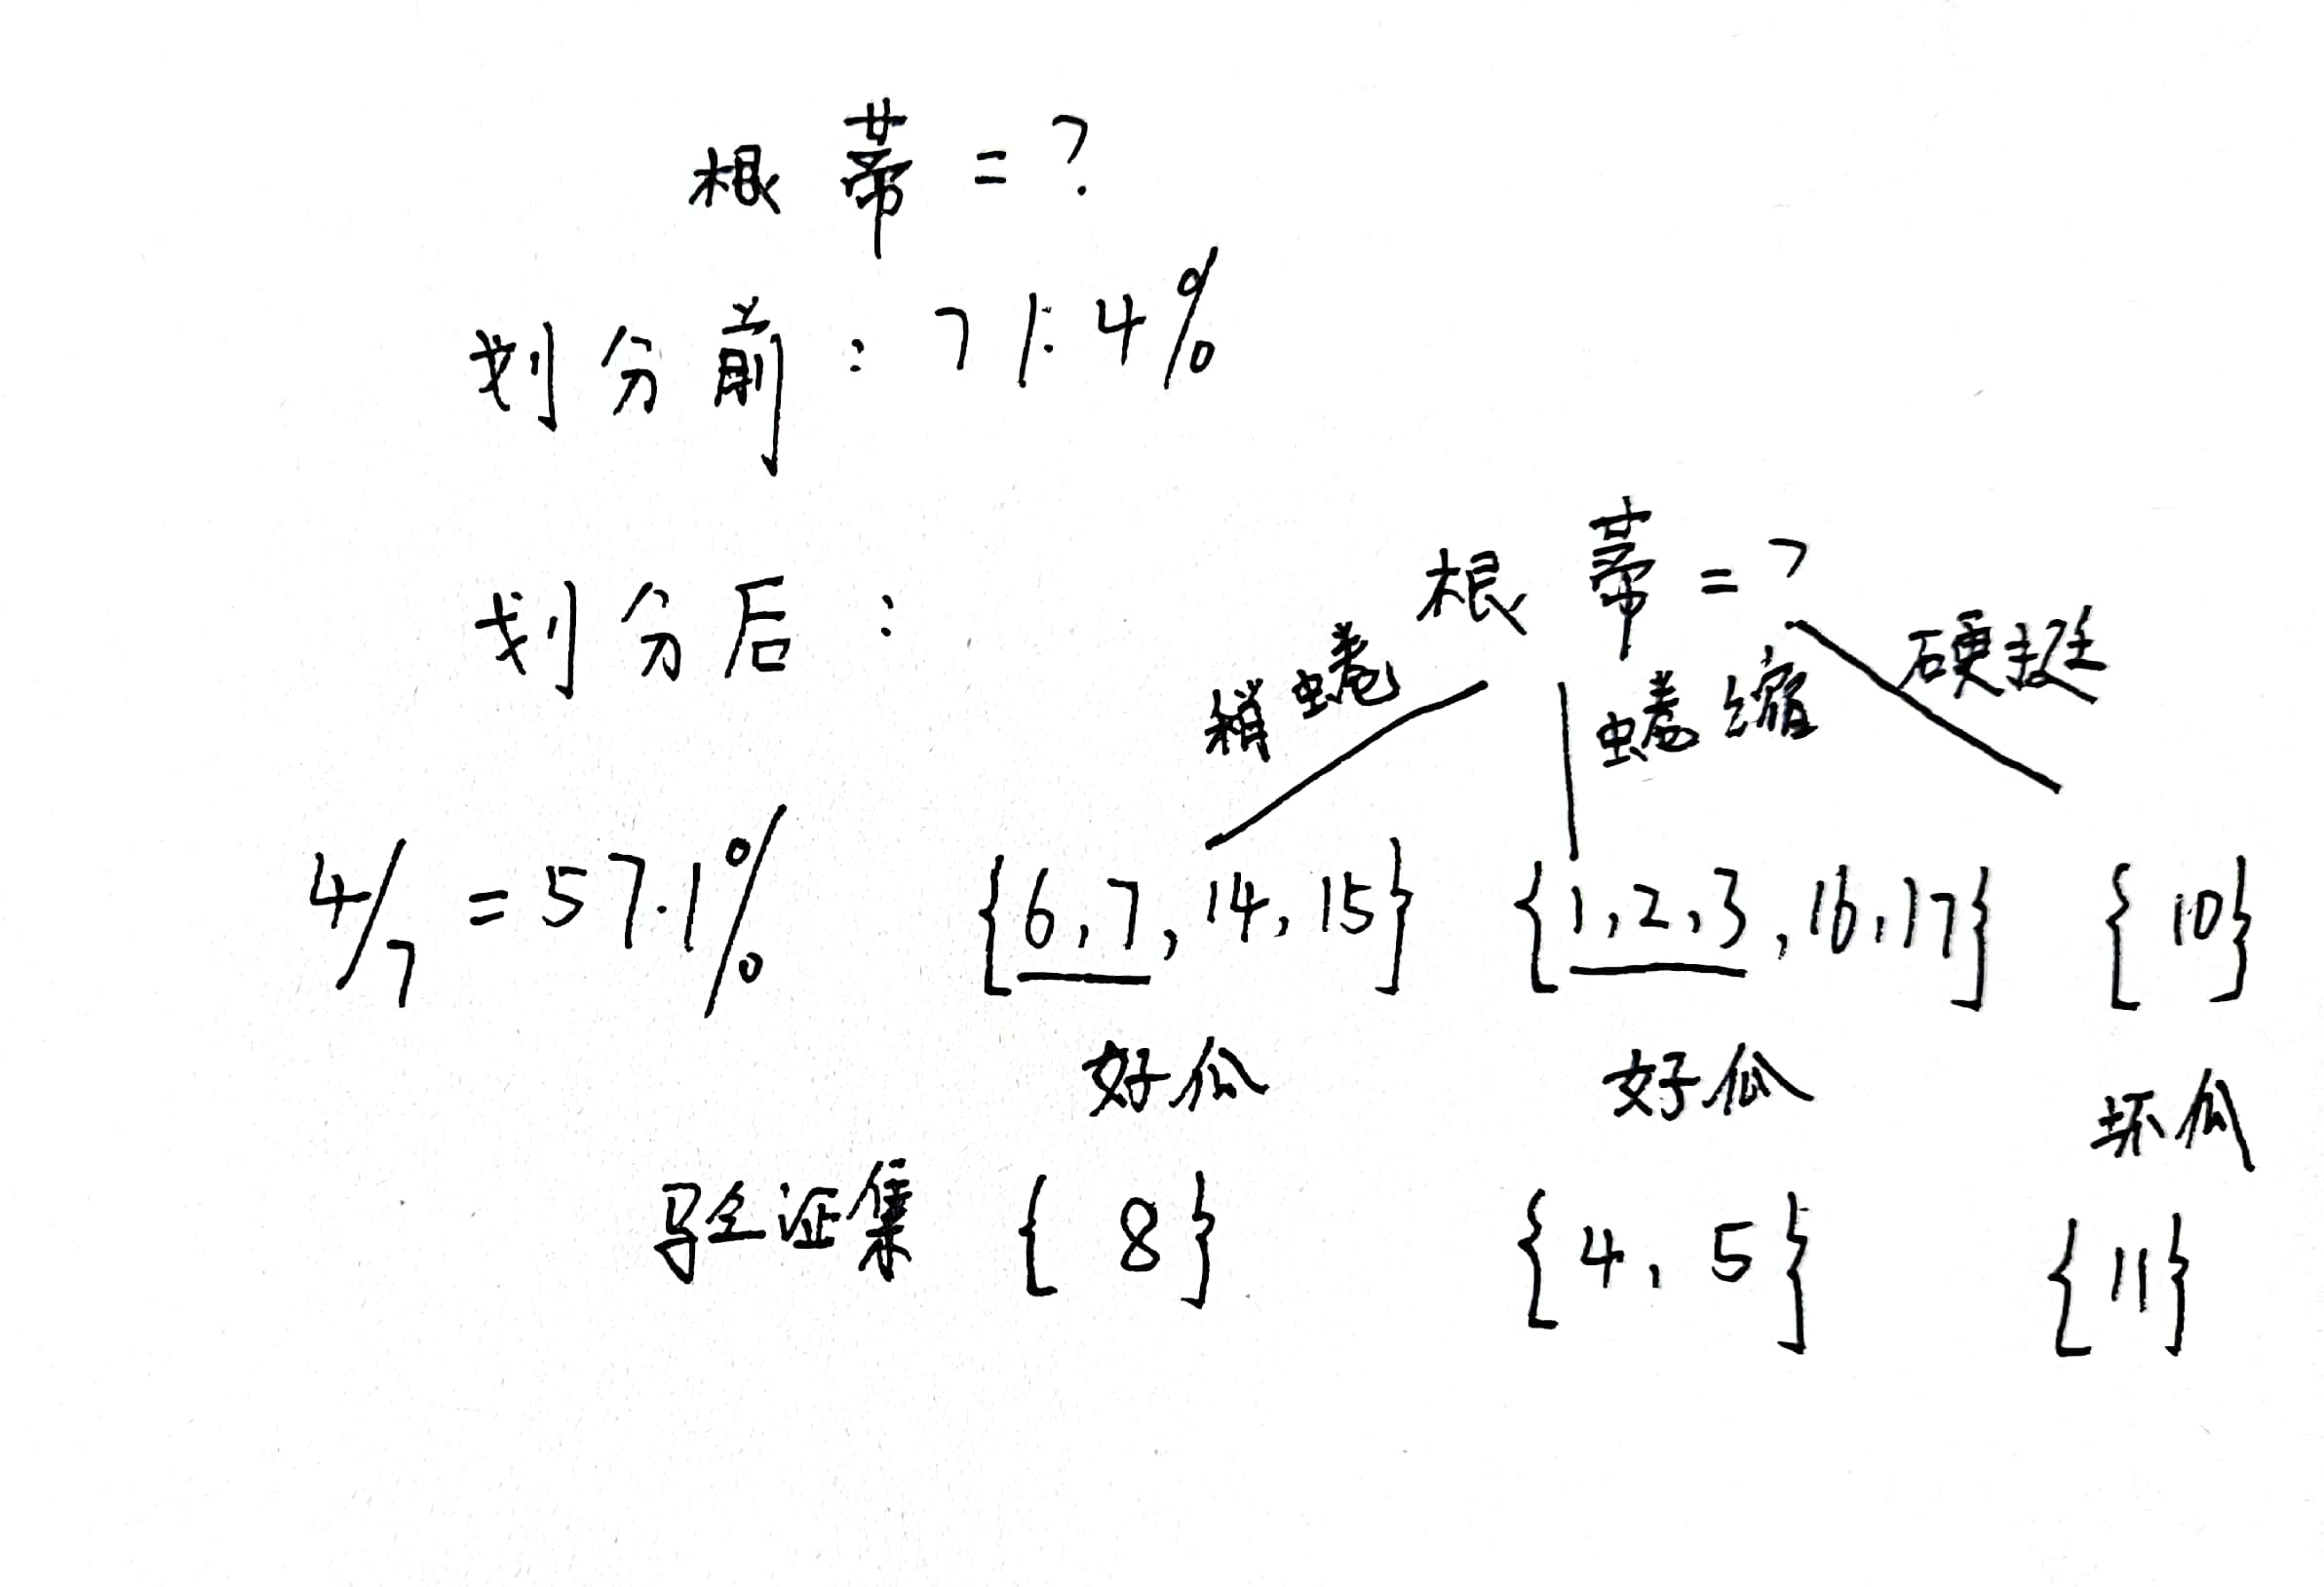 根蒂=?
划分前:71.4%
划分后:
根蒂=?
稍蜷 蜷缩 硬挺
4/7=57.1% {6,7,14,15} {1,2,3,16,17} {10}
好瓜 好瓜 坏瓜
验证集 {8} {4,5} {11}